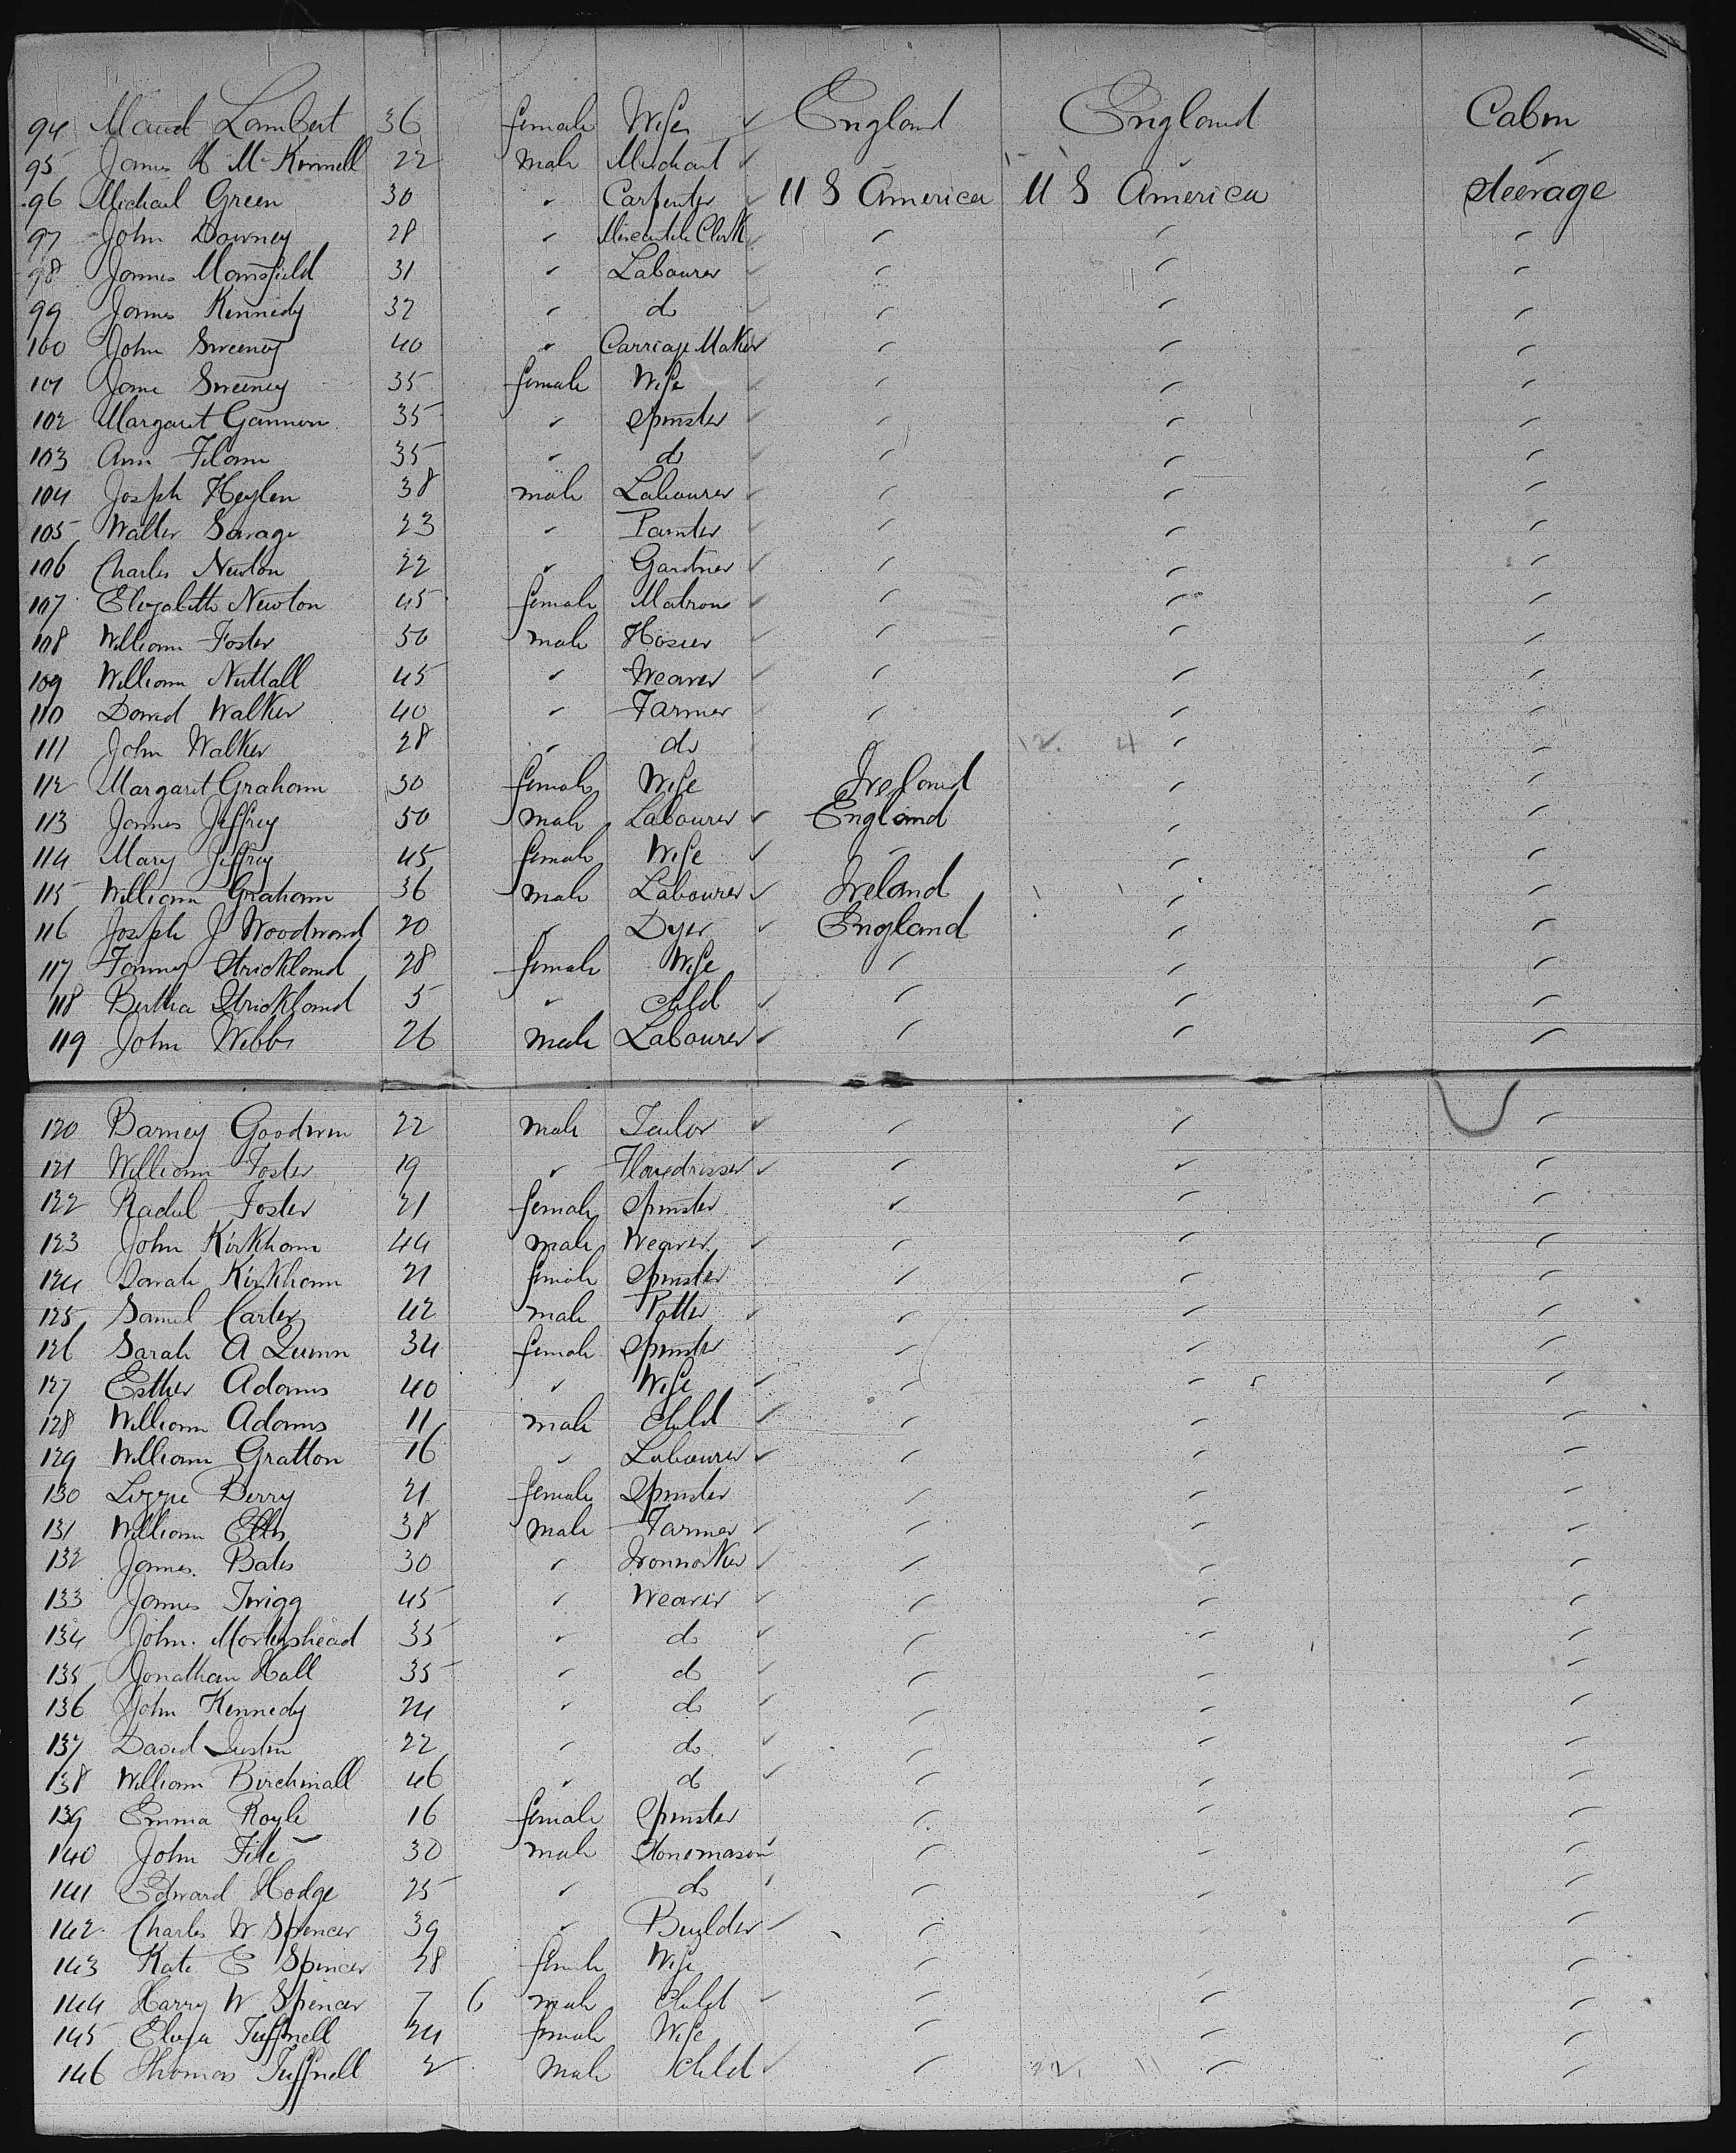 94 Maud Lambert 36 female Wife ✓ England England Cabin
95 James H McKinnell 22 male Merchant ✓ " " "
96 Michael Green 30 " Carpenter ✓ U S America U S America Steerage
97 John Downey 28 " Mercantile Clerk ✓ " " "
98 James Mansfield 31 " Labourer ✓ " " "
99 James Kennedy 32 " do ✓ " " "
100 John Sweeney 40 " Carriage Maker ✓ " " "
101 Jane Sweeney 35 female Wife ✓ " " "
102 Margaret Gannon 35 " Spinster ✓ " " "
103 Ann 35 " do ✓ " " "
104 Joseph Heylen 38 male Labourer ✓ " " "
105 Walter Savage 23 " Painter " " "
106 Charles Newton 22 " Gardner ✓ " " "
107 Elizabeth Newton 45 female Matron ✓ " " "
108 William Foster 50 male Hosier ✓ " " "
109 William Nuttall 45 " Weaver ✓ " " "
110 David Walker 40 " Farmer ✓ " " "
111 John Walker 28 " do 12. 4 " "
112 Margaret Graham 30 female Wife Ireland " "
113 James Jeffrey 50 male Labourer ✓ England " "
114 Mary Jeffrey 45 female Wife ✓ " " "
115 William Graham 36 male Labourer ✓ Ireland " "
116 Joseph J Woodward 20 " Dyer ✓ England " "
117 Fanny Strickland 28 female Wife " " "
118 Bertha Strickland 5 " Child ✓ " " "
119 John Webbs 26 male Labourer ✓ " " "
120 Barney Goodwin 22 male Tailor ✓ " " "
121 William Foster 19 " ✓ " " "
122 Rachel Foster 21 female Spinster " " "
123 John Kirkham 44 male Weaver ✓ " " "
124 Sarah Kirkham 21 female Spinster " " "
125 Samuel Carter 42 male Potter ✓ " " "
126 Sarah A Quinn 34 female Spinster " " "
127 Esther Adams 40 " Wife ✓ " " "
128 William Adams 11 male Child ✓ " " "
129 William Gratton 16 " Labourer ✓ " " "
130 Lizzie Berry 21 female Spinster " " "
131 William Ellis 38 male Farmer ✓ " " "
132 James Bates 30 " Ironworker ✓ " " "
133 James Twigg 45 " Weaver ✓ " " "
134 John 35 " do ✓ " " "
135 Jonathan Hall 35 " do ✓ " " "
136 John Kennedy 24 " do ✓ " " "
137 David 22 " do ✓ " " "
138 William Birchinall 46 " do ✓ " " "
139 Emma Royle 16 female Spinster " " "
140 John 30 male Stonemason ✓ " " "
141 Edward Hodge 25 " do " " "
142 Charles W Spencer 39 " Builder ✓ " " "
143 Kate E Spencer 28 female Wife " " "
144 Harry W Spencer 7 6 male Child ✓ " " "
145 Eliza Tuffnell 24 female Wife " " "
146 Thomas Tuffnell 2 male Child ✓ " 22. 11 " "